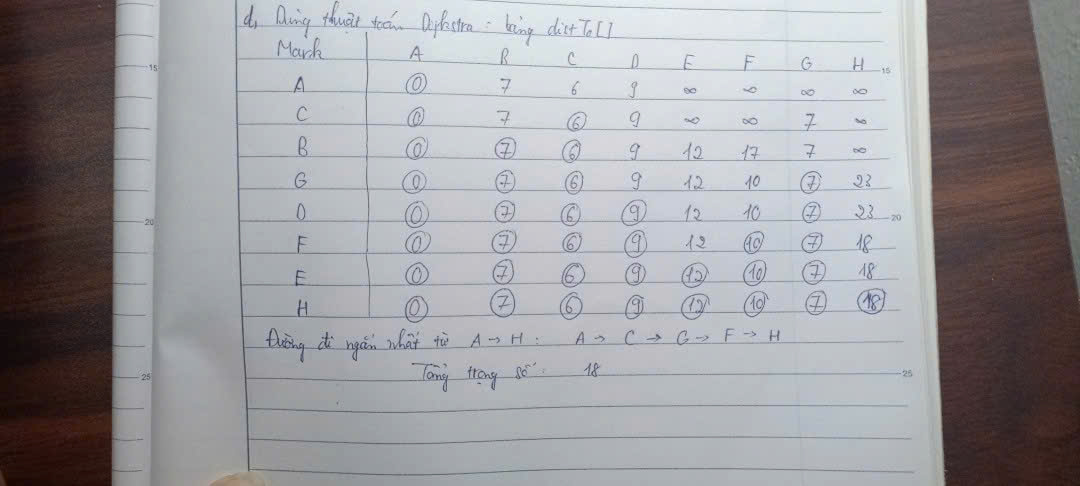 d, Dùng thuật toán Dijkstra : bảng distTo[]
Mark A B C D E F G H
A 0 7 6 9 ∞ ∞ ∞ ∞
C 0 7 6 9 ∞ ∞ 7 ∞
B 0 7 6 9 12 17 7 ∞
G 0 7 6 9 12 10 7 23
D 0 7 6 9 12 10 7 23
F 0 7 6 9 12 10 7 18
E 0 7 6 9 12 10 7 18
H 0 7 6 9 12 10 7 18
Đường đi ngắn nhất từ A → H : A → C → G → F → H
Tổng trọng số : 18
15
20
25
15
20
25